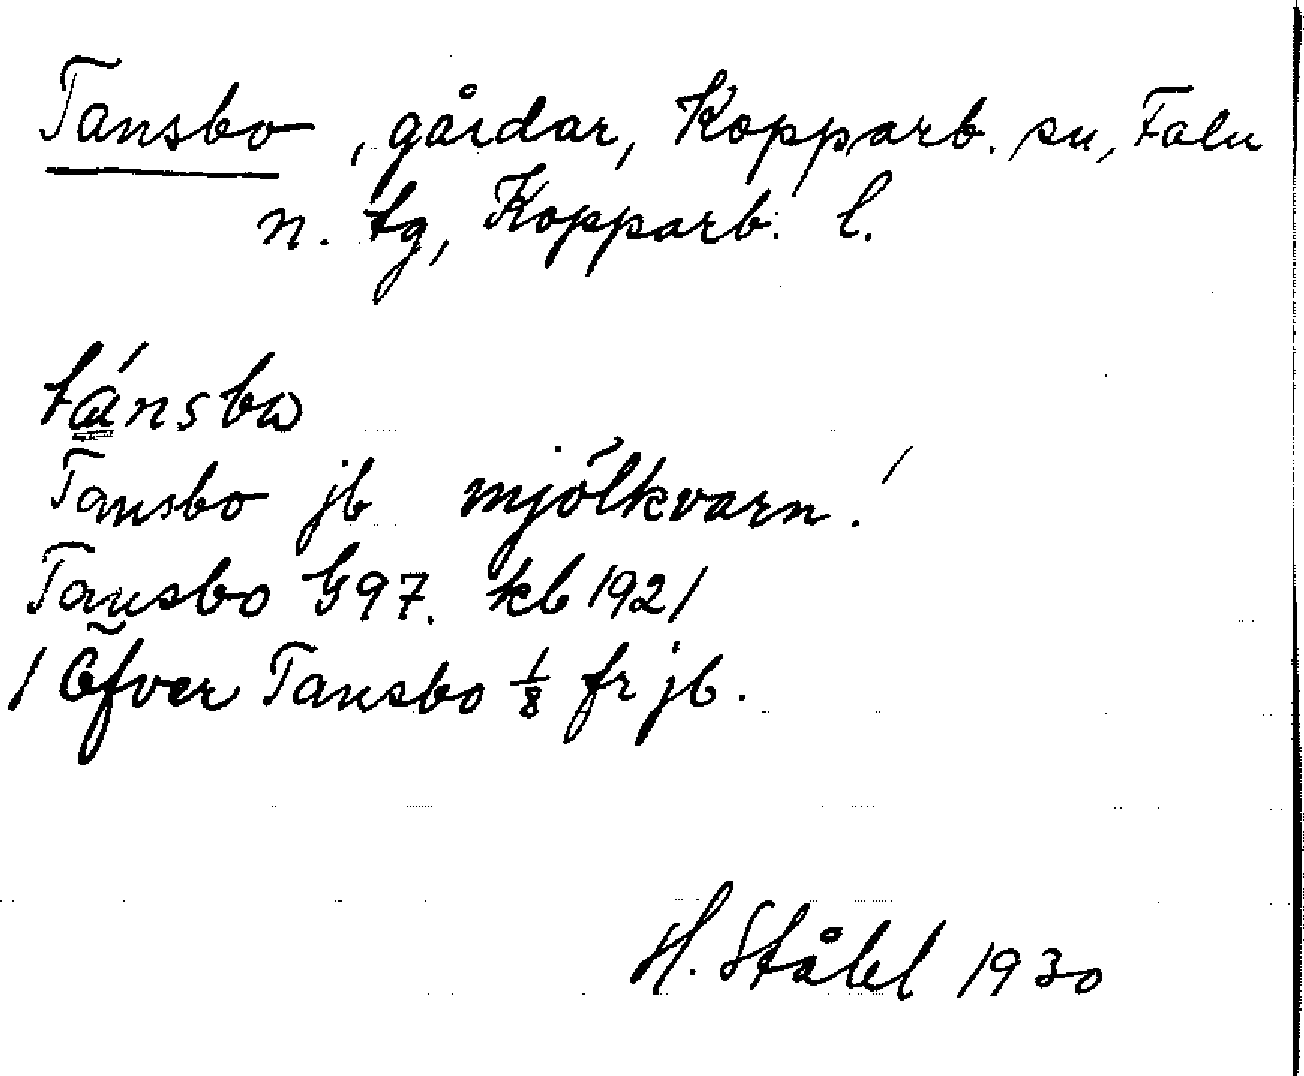 Tansbo, gårdar, Kopparb. sn, Falu
n. tg, Kopparb. l.
tánsbω
Tansbo jb mjölkvarn!
Tansbo G97. kb 1921
1 Öfver Tansbo 1/8 fr jb.
H. Ståhl 1930